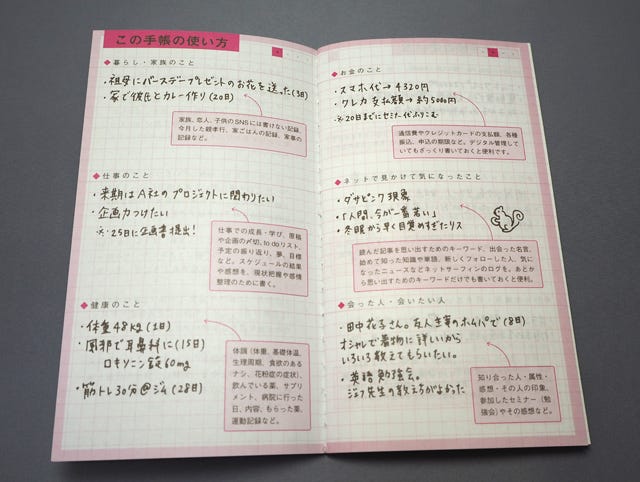 この手帳の使い方
◆暮らし・家族のこと
・祖母にバースデープレゼントのお花を送った(3日)
・家で彼氏とカレー作り(20日)
家族、恋人、子供のSNSには書けない記録、
今月した親孝行、家ごはんの記録、家事の
記録など。
◆仕事のこと
・来期はA社のプロジェクトに関わりたい
・企画力つけたい
※25日に企画書提出!
仕事での成長・学び、原稿
や企画の〆切、to doリスト、
予定の振り返り、夢、目標
など。スケジュールの結果
や感想を、現状把握や感情
整理のために書く。
◆健康のこと
・体重48kg(1日)
・風邪で耳鼻科に(15日)
ロキソニン錠60mg
・筋トレ30分@ジム(28日)
体調(体重、基礎体温、
生理周期、食欲のある
ナシ、花粉症の症状)、
飲んでいる薬、サプリ
メント、病院に行った
日、内容、もらった薬、
運動記録など。
◆お金のこと
・スマホ代→4320円
・クレカ支払額→約5000円
※20日までにセミナー代ふりこむ
通信費やクレジットカードの支払額、各種
振込、申込の期限など。デジタル管理して
いてもざっくり書いておくと便利です。
◆ネットで見かけて気になったこと
・ダサピンク現象
・「人間、今が一番若い」
・冬眠から早く目覚めすぎたリス
読んだ記事を思い出すためのキーワード、出会った名言、
始めて知った知識や単語、新しくフォローした人、気に
なったニュースなどネットサーフィンのログを。あとか
ら思い出すためのキーワードだけでも書いておくと便利。
◆会った人・会いたい人
・田中花子さん。友人宅のホムパで(8日)
オシャレで着物に詳しいから
いろいろ教えてもらいたい。
・英語勉強会。
ジェフ先生の教え方がよかった
知り合った人・属性・
感想・その人の印象、
参加したセミナー(勉
強会)やその感想など。